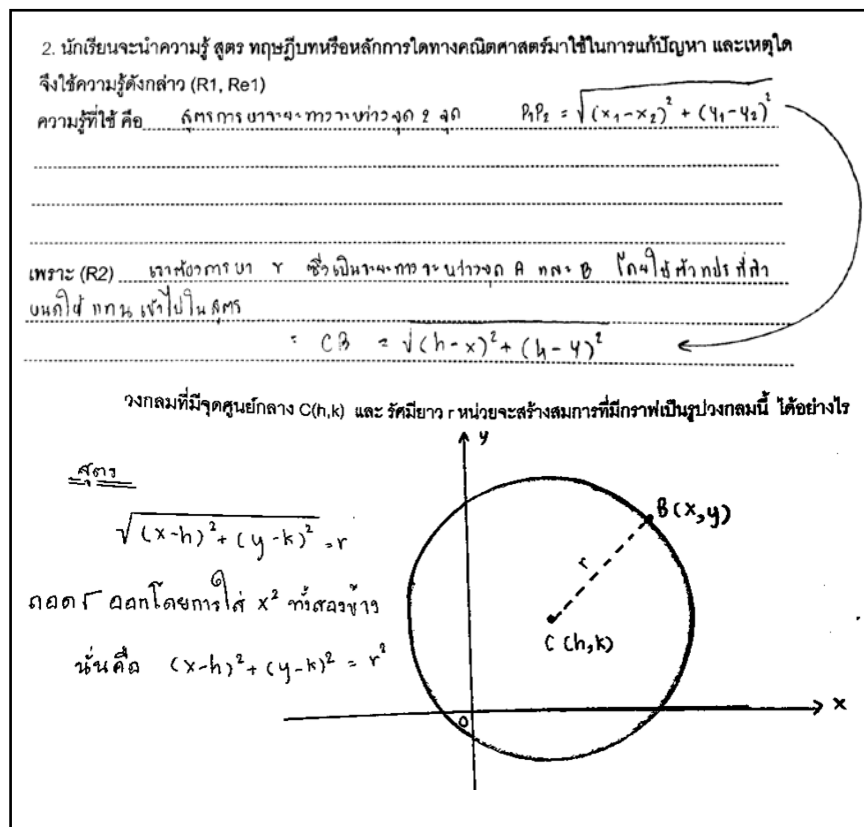 2. นักเรียนจะนำความรู้ สูตร ทฤษฎีบทหรือหลักการใดทางคณิตศาสตร์มาใช้ในการแก้ปัญหา และเหตุใด
จึงใช้ความรู้ดังกล่าว (R1, Re1)
ความรู้ที่ใช้ คือ สูตรการหาระยะทางระหว่างจุด 2 จุด P₁P₂ = √(x₁-x₂)² + (y₁-y₂)²
เพราะ (R2) เราต้องการหา r ซึ่งเป็นระยะทางระหว่างจุด A และ B โดยใช้ตัวแปรที่กำ
หนดให้ แทนเข้าไปในสูตร
= CB = √(h-x)² + (h-y)²
วงกลมที่มีจุดศูนย์กลาง C(h,k) และ รัศมียาว r หน่วยจะสร้างสมการที่มีกราฟเป็นรูปวงกลมนี้ ได้อย่างไร
y
สูตร
B(x,y)
√(x-h)² + (y-k)² = r
r
ถอด√ ออกโดยการใส่ x² ทั้งสองข้าง
C(h,k)
นั่นคือ (x-h)² + (y-k)² = r²
0
x